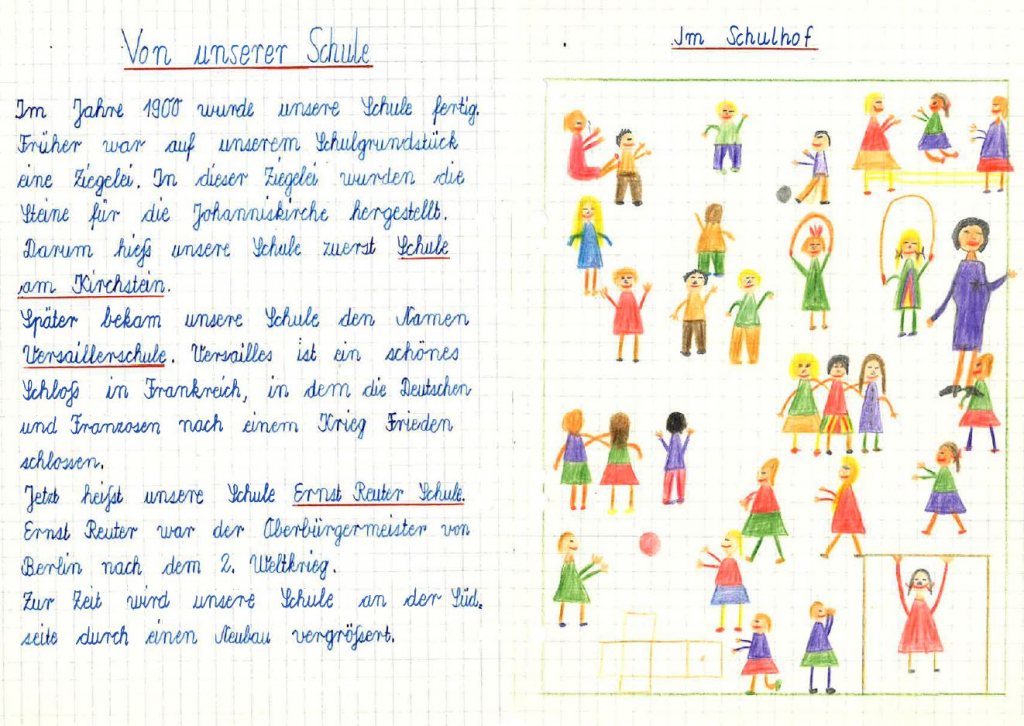 Von unserer Schule
Im Jahre 1900 wurde unsere Schule fertig.
Früher war auf unserem Schulgrundstück
eine Ziegelei. In dieser Ziegelei wurden die
Steine für die Johanniskirche hergestellt.
Darum hieß unsere Schule zuerst Schule
am Kirchstein.
Später bekam unsere Schule den Namen
Versaillerschule. Versailles ist ein schönes
Schloß in Frankreich, in dem die Deutschen
und Franzosen nach einem Krieg Frieden
schlossen.
Jetzt heißt unsere Schule Ernst Reuter Schule.
Ernst Reuter war der Oberbürgermeister von
Berlin nach dem 2. Weltkrieg.
Zur Zeit wird unsere Schule an der Süd.
seite durch einen Neubau vergrößert.
Im Schulhof